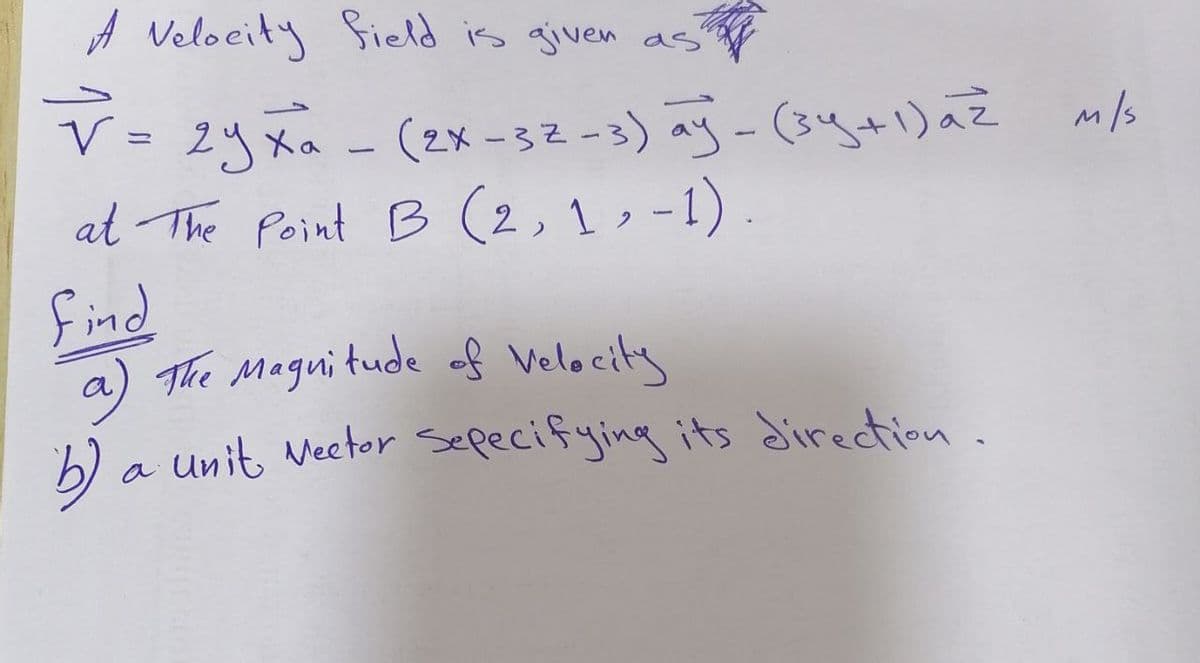 A Velocity field is given as
V⃗ = 2y x⃗a - (2x - 3z - 3) a⃗y - (3y + 1) a⃗z m/s
at The Point B (2, 1, -1).
find
a) The Magnitude of Velocity
b) a unit Vector Sepecifying its direction.